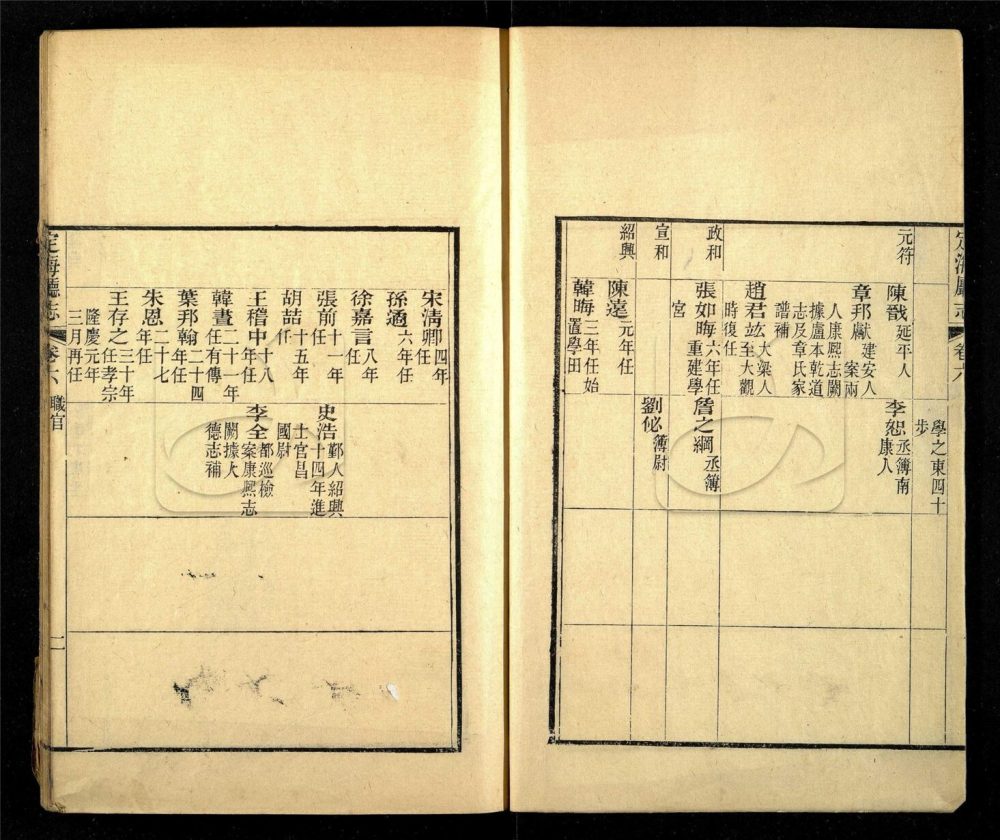 定海廳志 卷六
學之東四十
步
元符
陳戩 延平人
李恕 丞簿南
康人
章邦獻 建安人
案兩
人康熙志闕
據盧本乾道
志及章氏家
譜補
趙君竑 大梁人
至大觀
時復任
政和
張如晦 六年任
重建學
宮
詹之綱 丞簿
宣和
劉佖 簿尉
紹興
陳 元年任
韓晦 三年任始
置學田
宋清卿 四年
任
孫適 六年任
徐嘉言 八年
任
張前 十一年
任
史浩 鄞人紹興
十四年進
士官昌
國尉
胡喆 十五年
任
王稽中 十八
年任
李全 都巡檢
案康熙志
闕據大
德志補
韓晝 二十一年
任有傳
葉邦翰 二十四
年任
朱恩 二十七
年任
王存之 三十年
任孝宗
隆慶元年
三月再任
定海廳志 卷六 職官 二